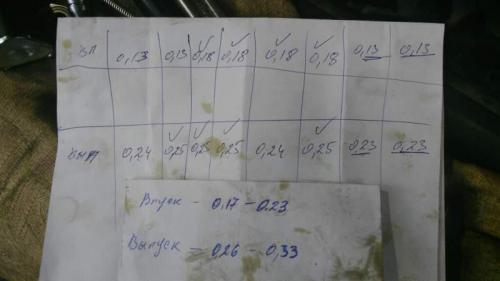 ВП 0,13 0,13 0,18 0,18 0,18 0,18 0,13 0,13
вып 0,24 0,25 0,25 0,25 0,24 0,25 0,23 0,23
Впуск - 0,17 - 0.23
Выпуск = 0,26 - 0,33